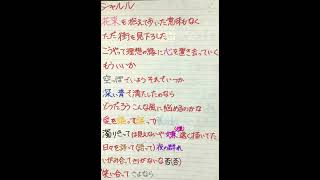 シャルル
花束を抱えて歩いた意味もなく
ただ街を見下ろした
こうやって理想の縁に心を置き去っていく
もういいか
空っぽでいよう それでいつか
深い青で満たしたのなら
どうだろう こんな風に悩めるのかな
愛を
濁りきっては見えないや 嫌 遠く描いていた
日々を 語って 夜の群れ
いがみ合ってきりがないな 否
笑い合ってさよなら